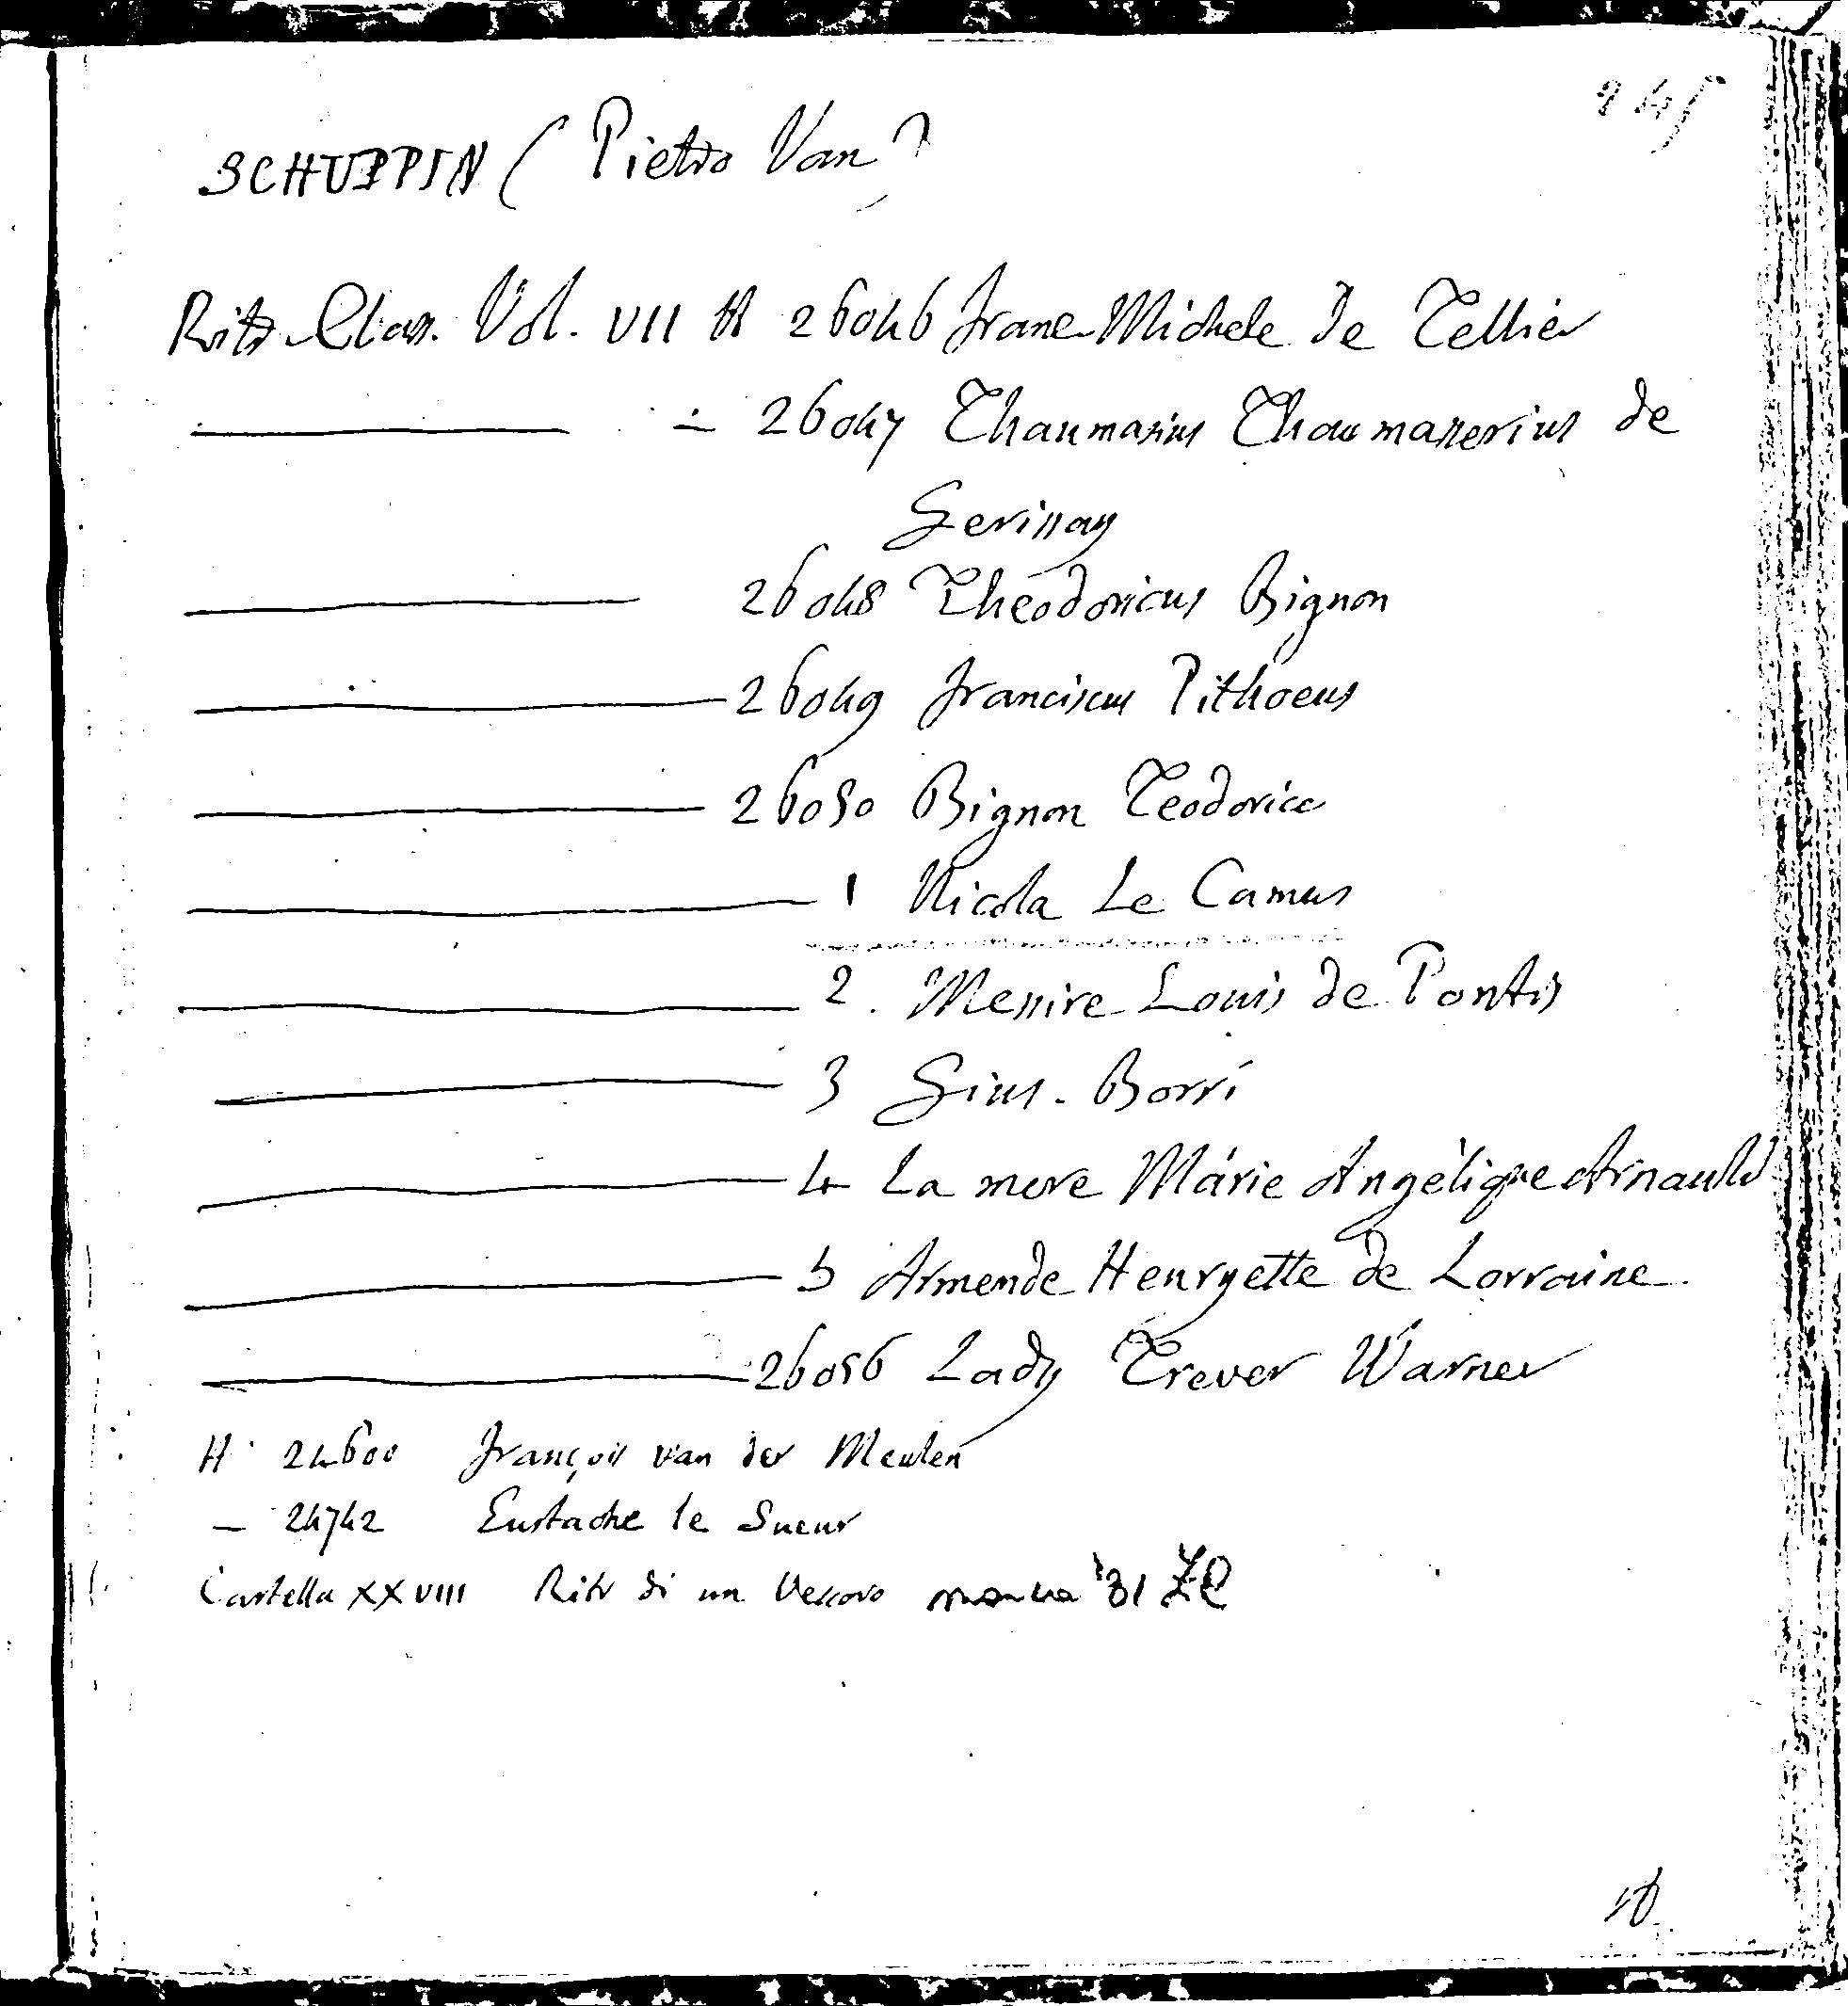 245
SCHUPPIN (Pietro Van)
Ritr. Class. Vol. VII H 26046 Franc. Michele de Tellier
— 26047 Thaumasius Thaumaserius de
Gerissay
26048 Theodoricus Bignon
26049 Franciscus Pithoeus
26050 Bignon Teodorico
1 Nicola Le Camus
2. Messire Louis de Pontis
3 Gius. Borri
4 La mere Márie Angèlique Arnauld
5 Armende Henryette de Lorraine
26056 Lady Trever Warner
H 24600 François van der Meulen
— 24742 Eustache le Sueur
Cartella XXVIII Ritr di un Vescovo manca '31